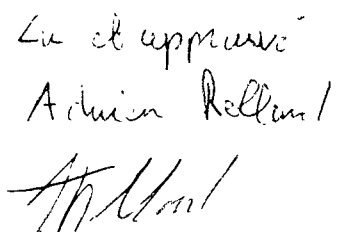 Lu et approuvé
Adrien Rolland